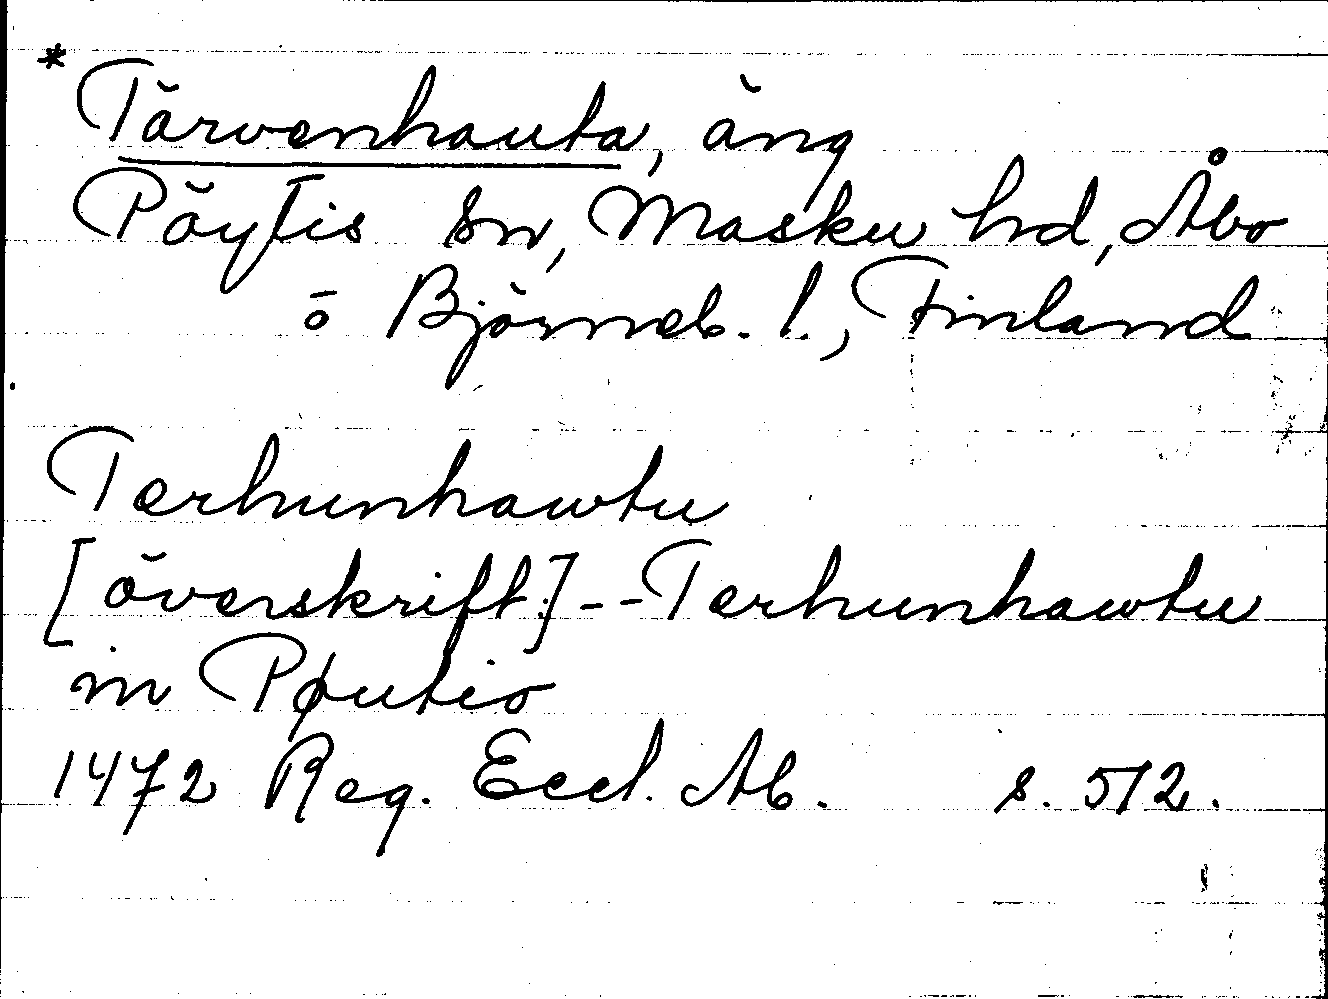 *Tärvenhauta, äng
Pöytis sn, Masku hd, Åbo
o Björneb. l., Finland
Terhunhawtu
[överskrift:] -- Terhunhawtu
in Pøutis
1472 Reg. Eccl. Ab. s. 512.